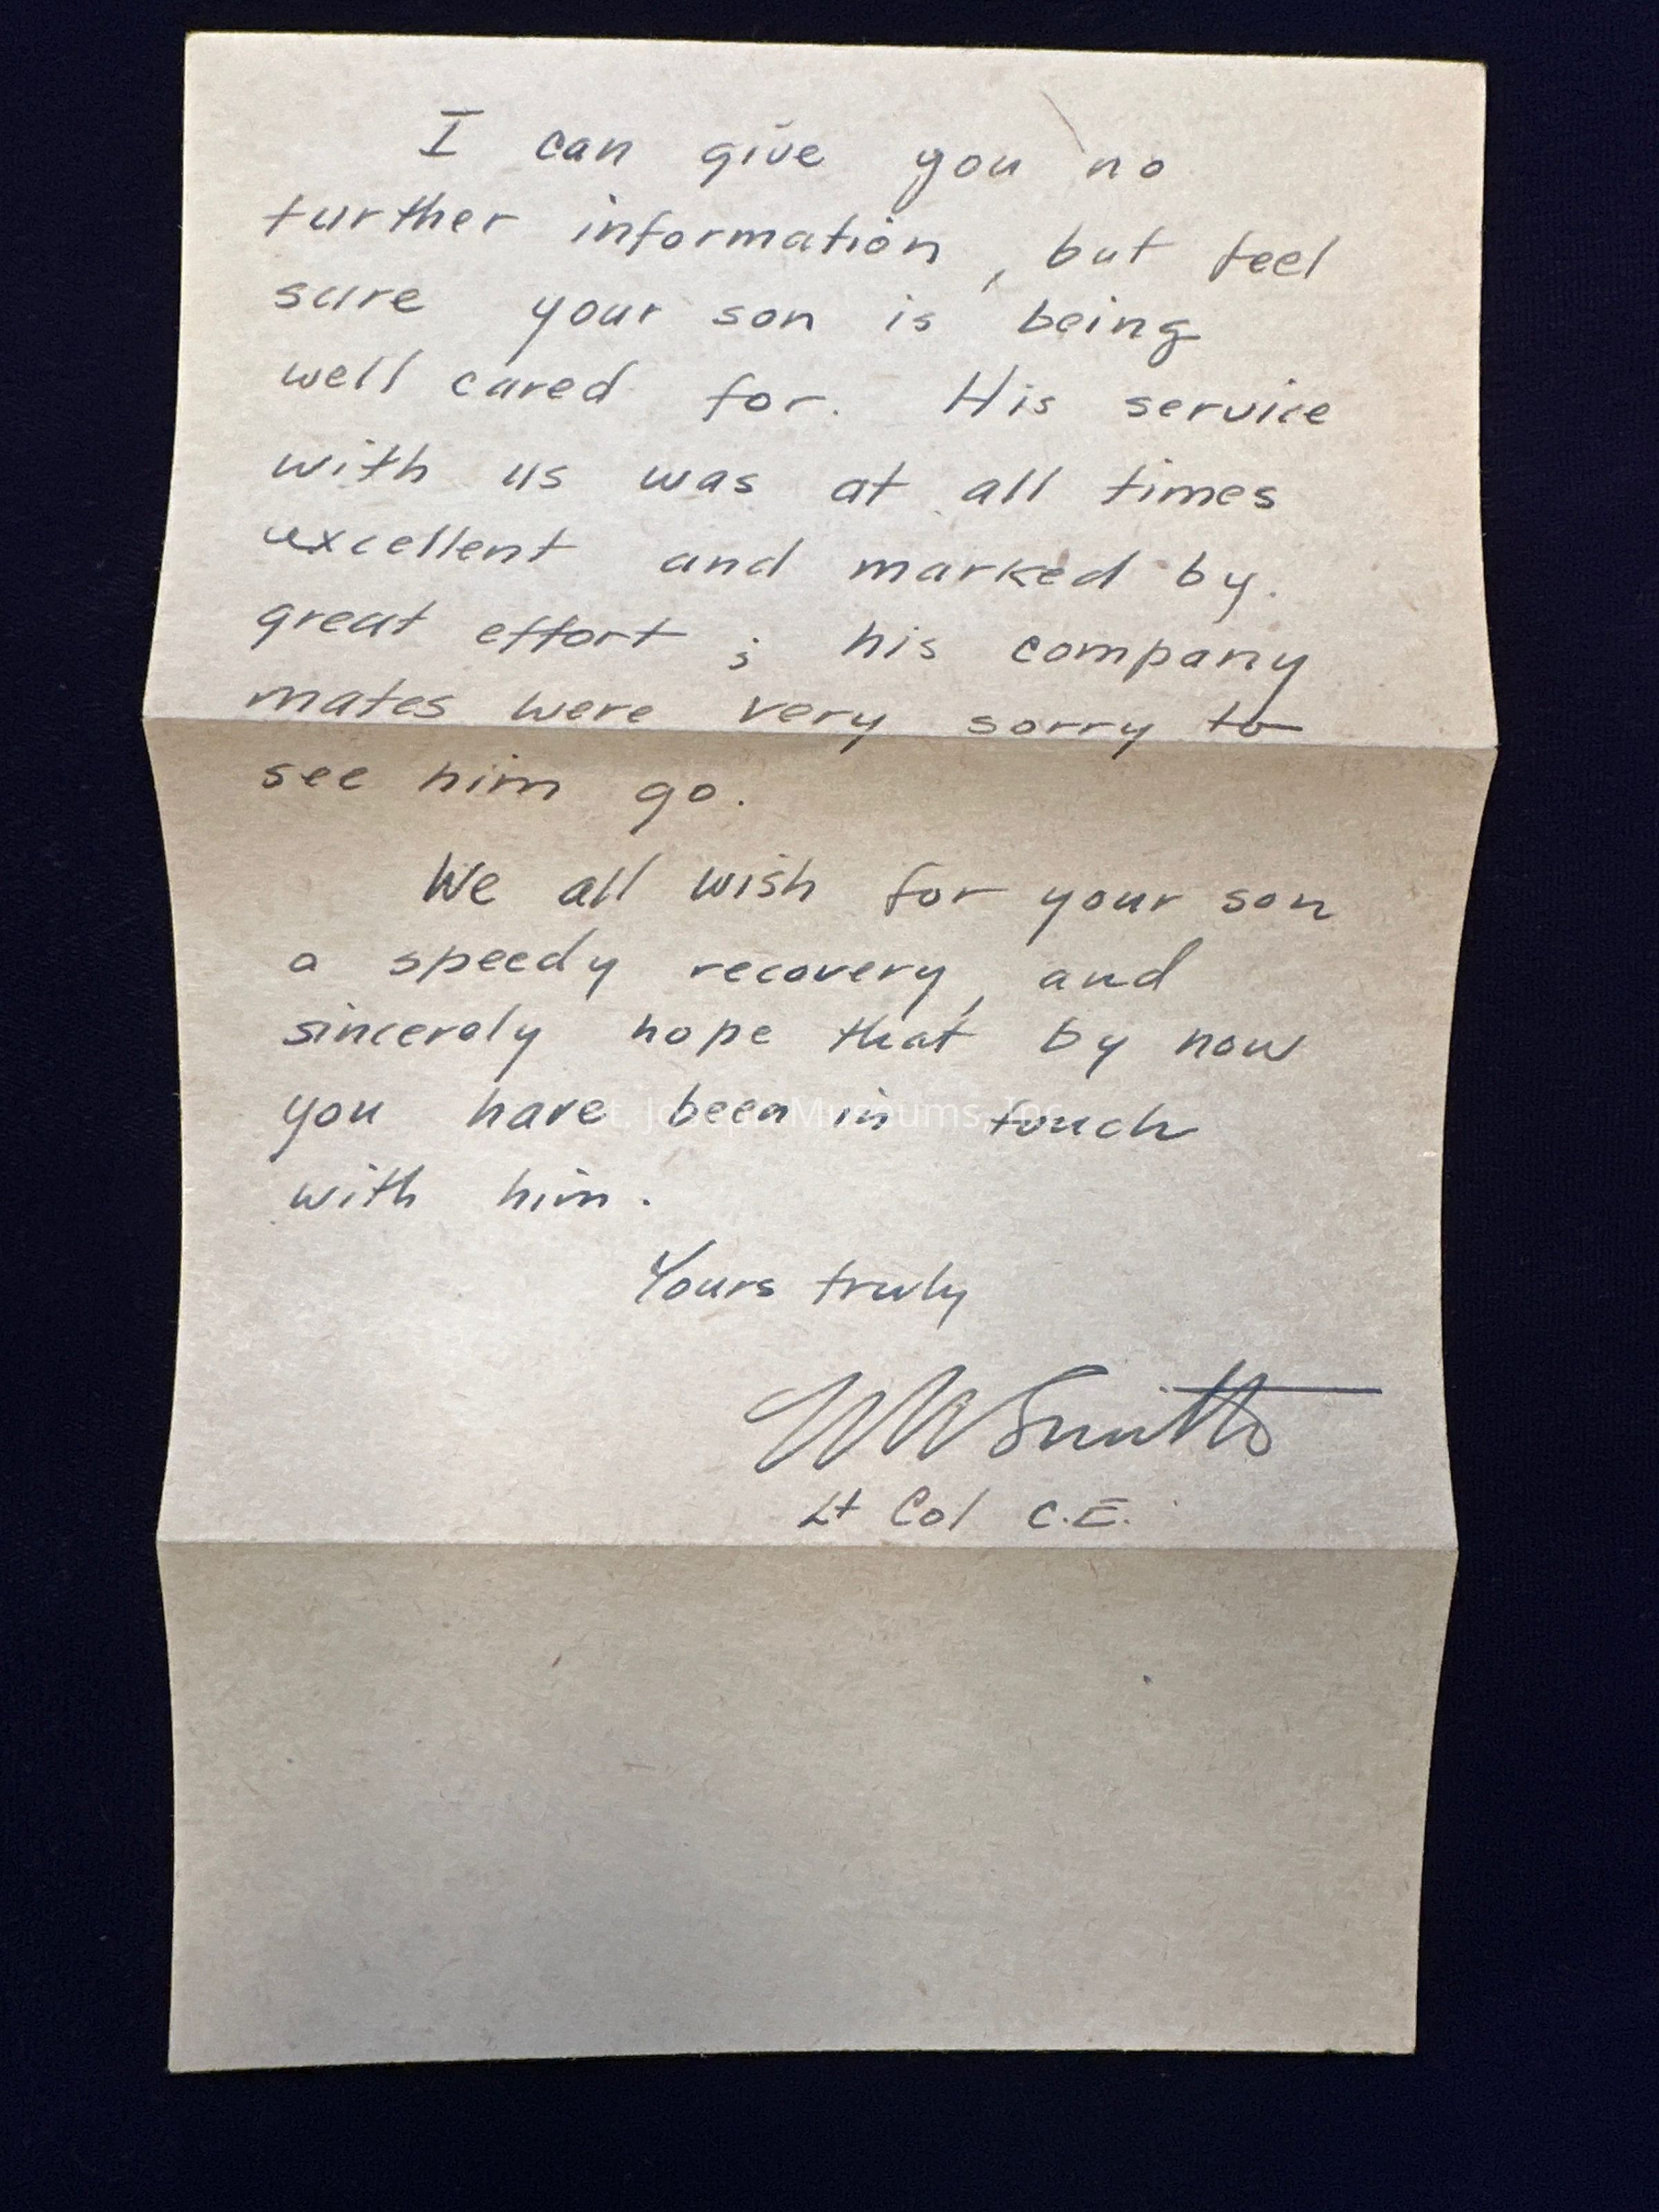 I can give you no
further information, but feel
sure your son is being
well cared for. His service
with us was at all times
excellent and marked by.
great effort; his company
mates were very sorry to
see him go.
We all wish for your son
a speedy recovery, and
sincerely hope that by now
you have been in touch
with him.
Yours truly
WW Smith
Lt Col C.E.
St. Joseph Museums, Inc.